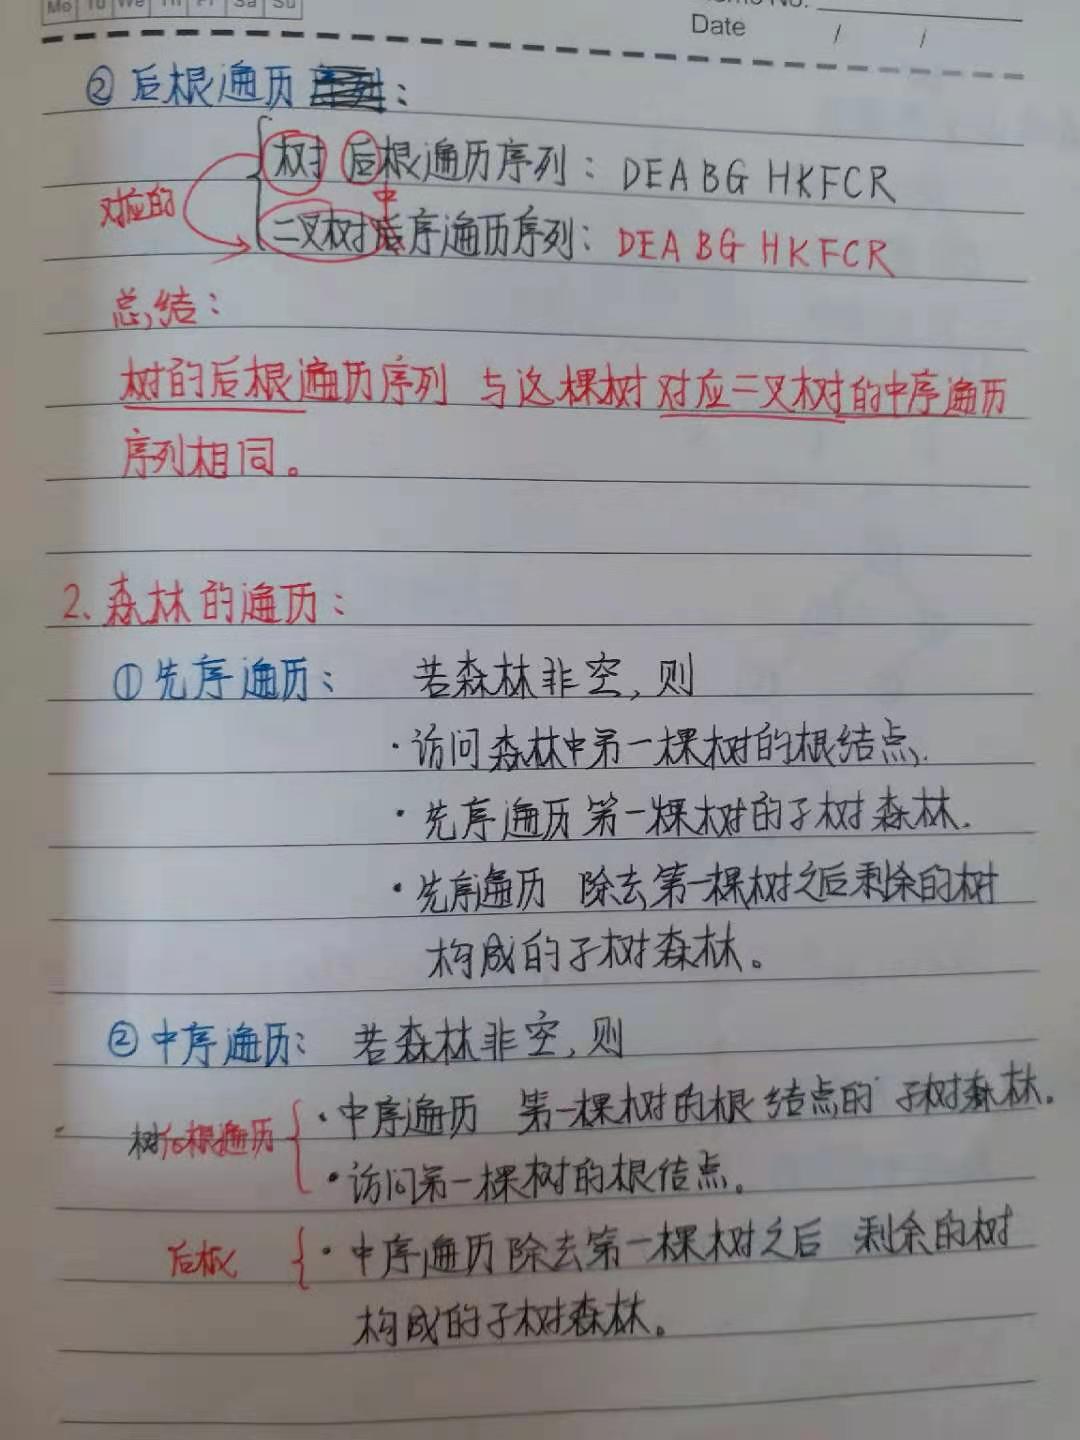 Mo Tu We Th Fr Sa Su
Date / /
② 后根遍历:
树 后根遍历序列: DEABG HKFCR
对应的
中
二叉树序遍历序列: DEABG HKFCR
总结:
树的后根遍历序列 与这棵树对应二叉树的中序遍历
序列相同。
2. 森林的遍历:
① 先序遍历: 若森林非空,则
· 访问森林中第一棵树的根结点.
· 先序遍历第一棵树的子树森林.
· 先序遍历 除去第一棵树之后剩余的树
构成的子树森林。
② 中序遍历: 若森林非空,则
· 中序遍历 第一棵树的根结点的子树森林.
树后根遍历
· 访问第一棵树的根结点。
后根
· 中序遍历除去第一棵树之后 剩余的树
构成的子树森林。